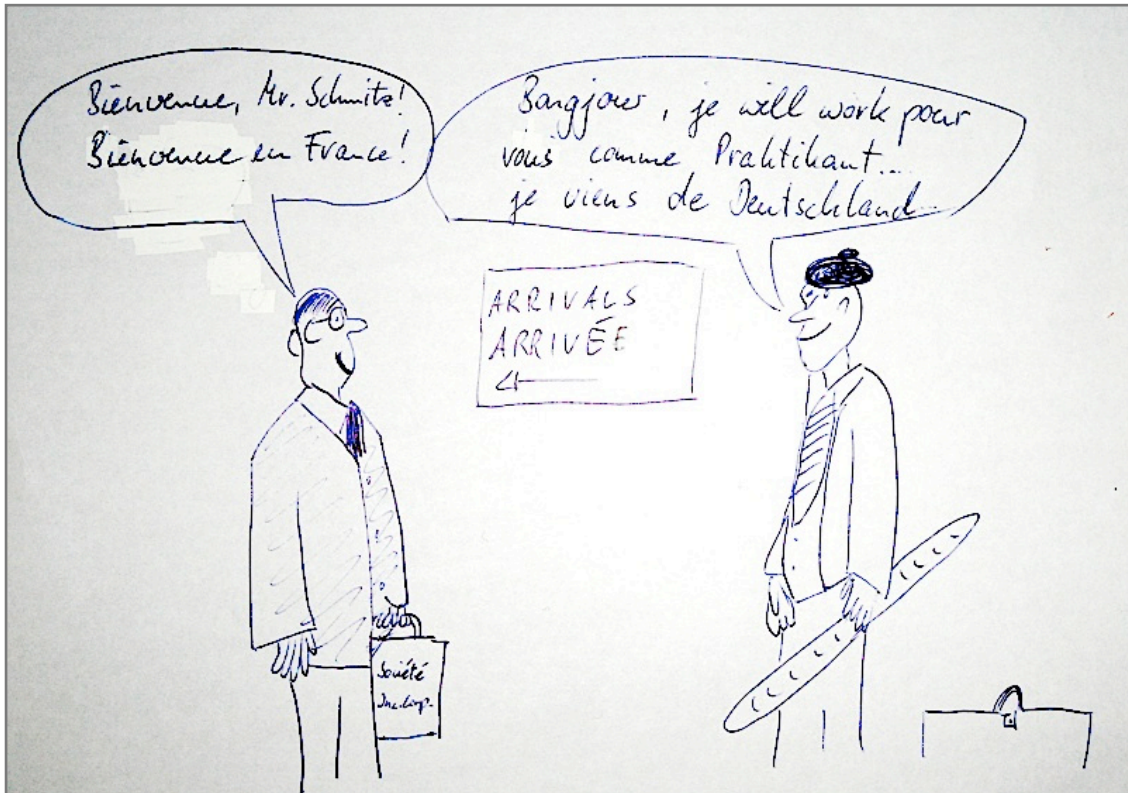 Bienvenue, Mr. Schmitz!
Bienvenue en France!
Bangjour, je will work pour
vous comme Praktikant...
je viens de Deutschland...
ARRIVALS
ARRIVÉE
Société